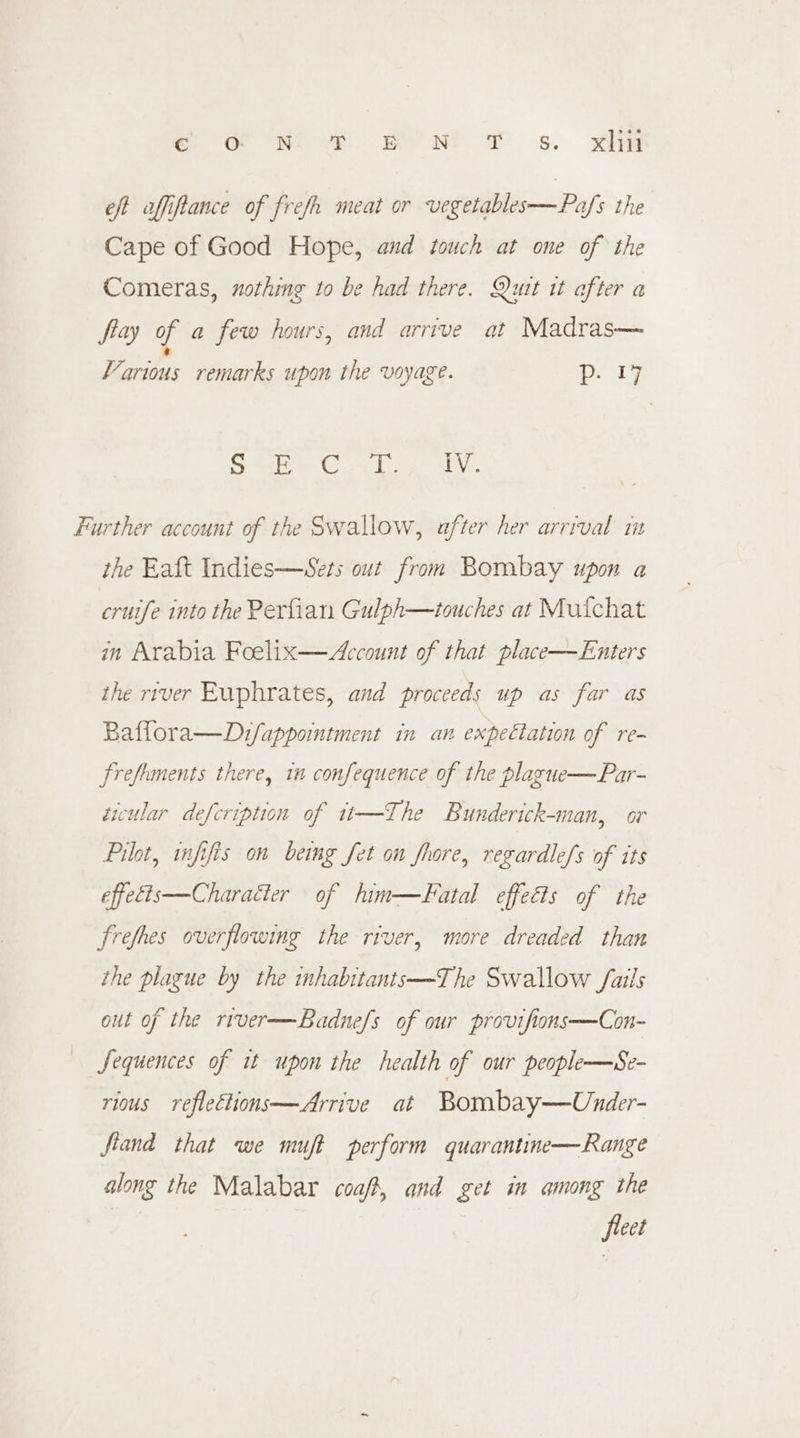 C O N T E N T S. xliii
eſt aſſiſtance of freſh meat or vegetables—Paſs the
Cape of Good Hope, and touch at one of the
Comeras, nothing to be had there. Quit it after a
ſtay of a few hours, and arrive at Madras—
Various remarks upon the voyage. p. 17
S E C T. IV.
Further account of the Swallow, after her arrival in
the Eaſt Indies—Sets out from Bombay upon a
cruiſe into the Perſian Gulph—touches at Muſchat
in Arabia Fœlix—Account of that place—Enters
the river Euphrates, and proceeds up as far as
Baſſora—Diſappointment in an expectation of re-
freſhments there, in conſequence of the plague—Par-
ticular deſcription of it—The Bunderick-man, or
Pilot, inſiſts on being ſet on ſhore, regardleſs of its
effects—Character of him—Fatal effects of the
freſhes overflowing the river, more dreaded than
the plague by the inhabitants—The Swallow ſails
out of the river—Badneſs of our proviſions—Con-
ſequences of it upon the health of our people—Se-
rious reflections—Arrive at Bombay—Under-
ſtand that we muſt perform quarantine—Range
along the Malabar coaſt, and get in among the
fleet